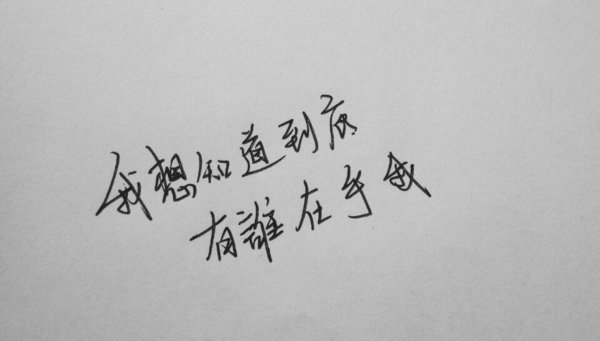 我想知道到底
有誰在乎我